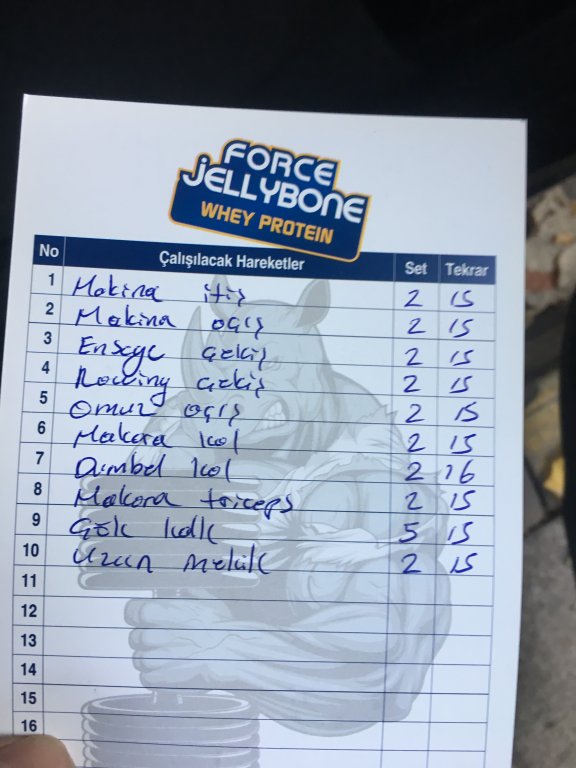 FORCE
JELLYBONE
WHEY PROTEIN
No Çalışılacak Hareketler Set Tekrar
1 Makina itiş 2 15
2 Makina açış 2 15
3 Enseye çekiş 2 15
4 Rowing çekiş 2 15
5 Omuz açış 2 15
6 Makara kol 2 15
7 Dumbel kol 2 16
8 Makara triceps 2 15
9 Çök kalk 5 15
10 Uzun mekik 2 15
11
12
13
14
15
16